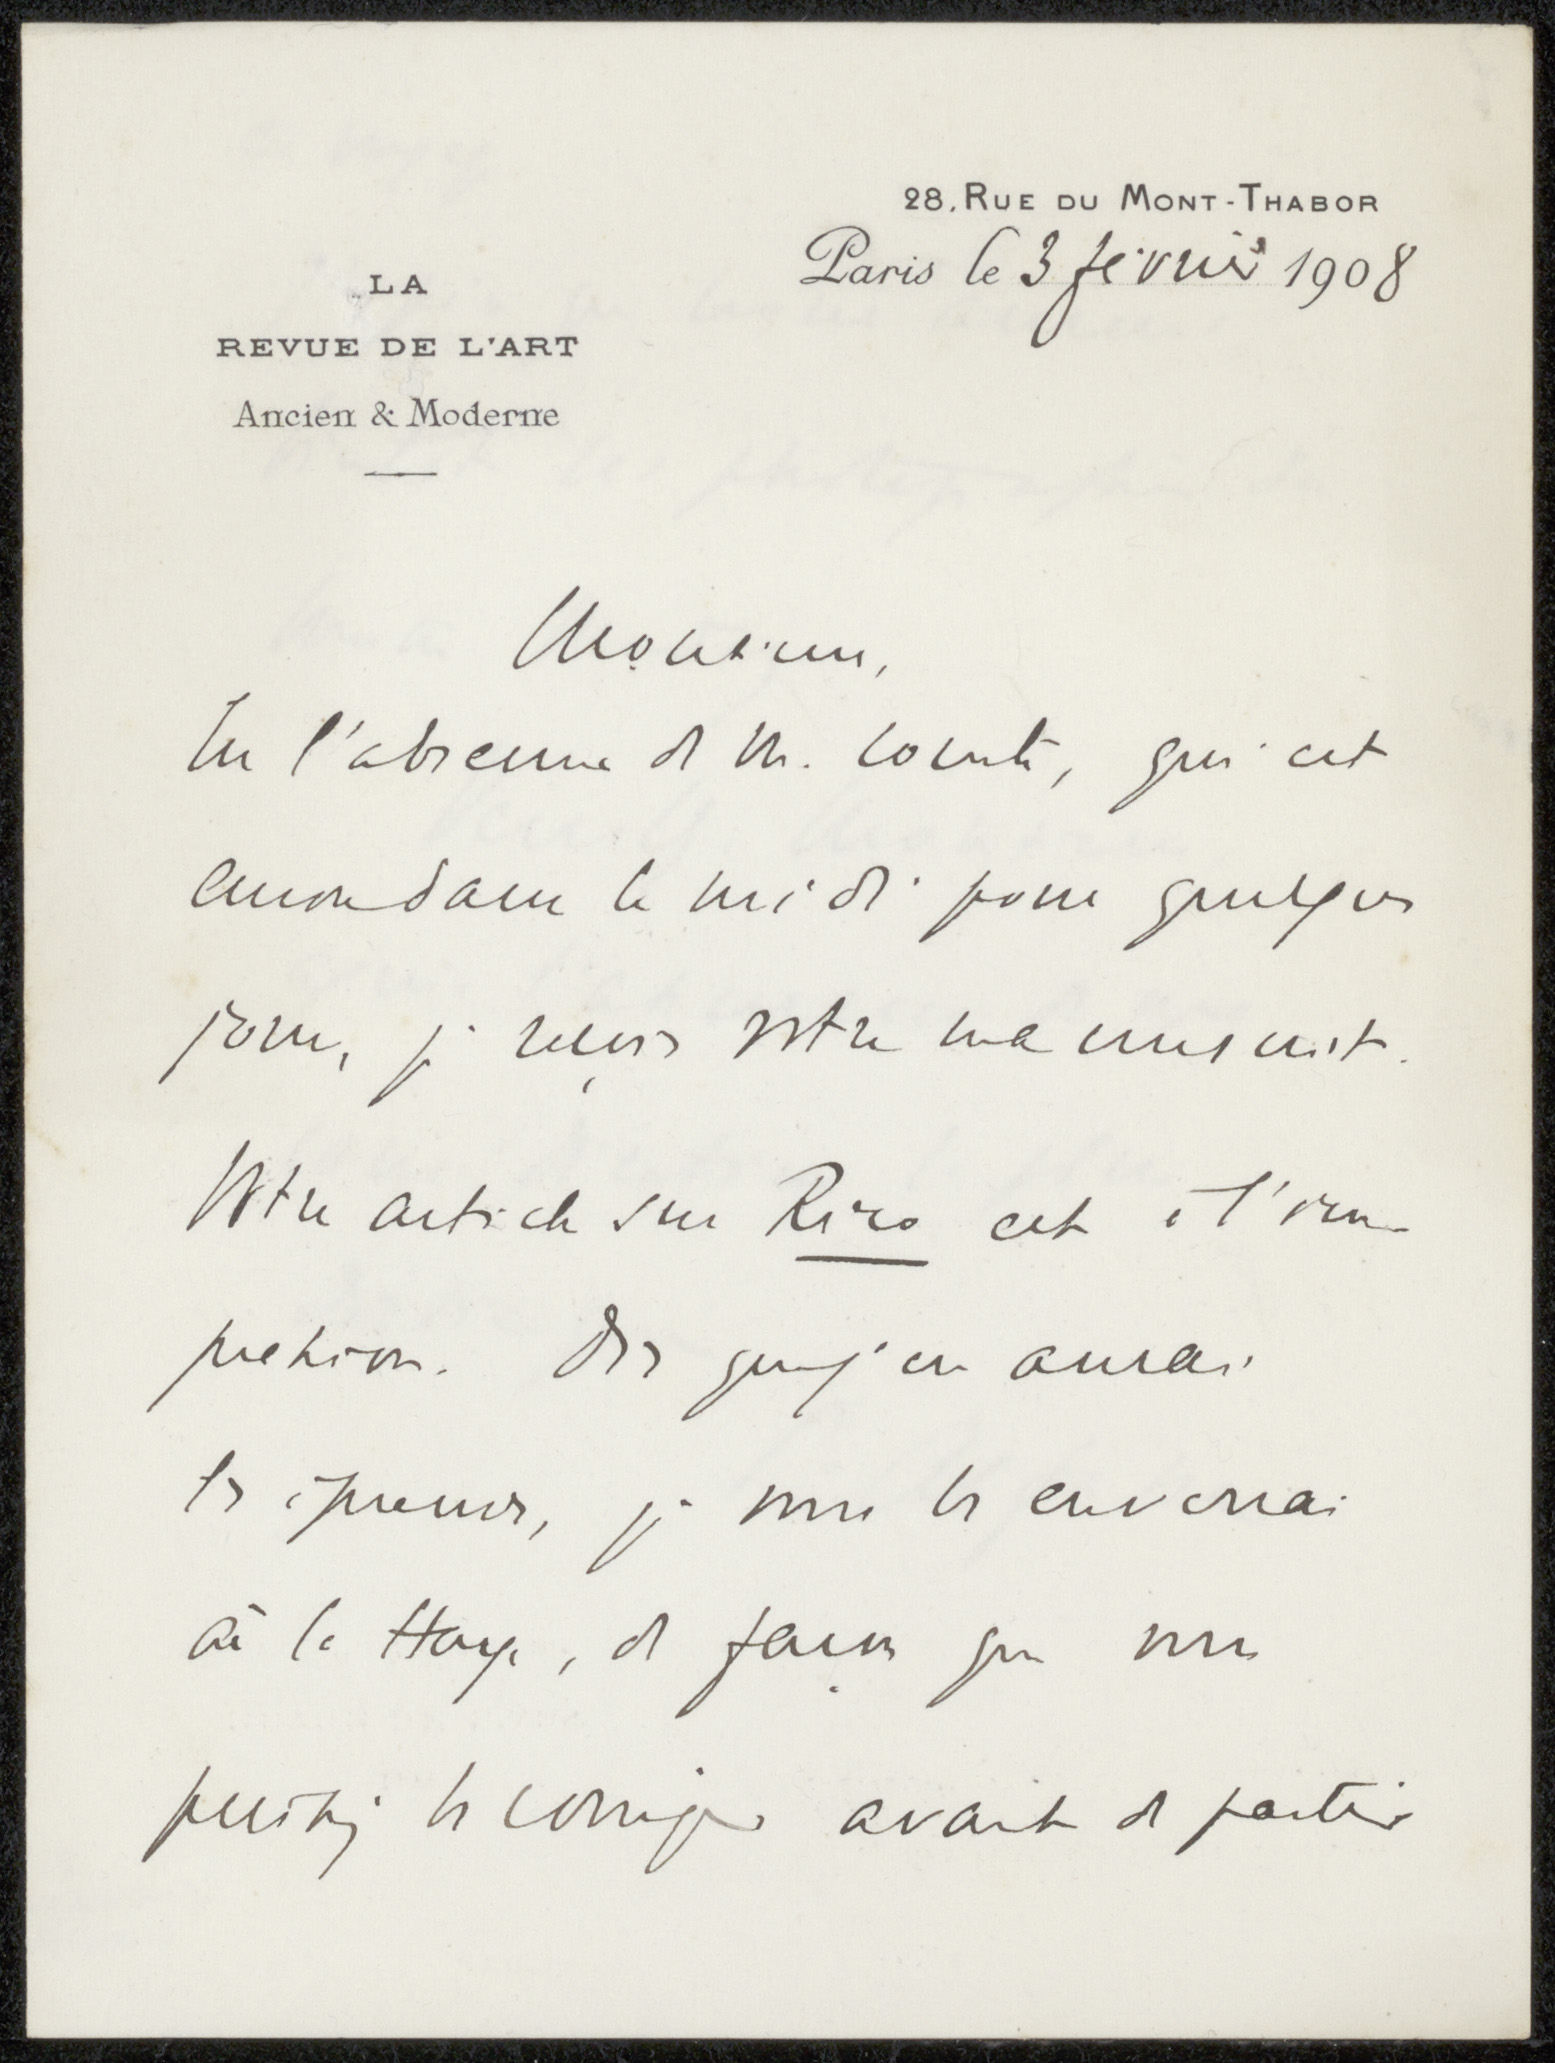 28, RUE DU MONT-THABOR
Paris le 3 février 1908
LA
REVUE DE L'ART
Ancien & Moderne
Monsieur,
En l'absence de M. Comte, qui est
encore dans le midi pour quelques
jours, je reçois votre manuscrit.
Votre article sur Rico est à l'im-
pression. Dès que j'en aurai
les épreuves, je vous les enverrai
à la Haye, de façon que vous
puissiez les corriger avant de partir